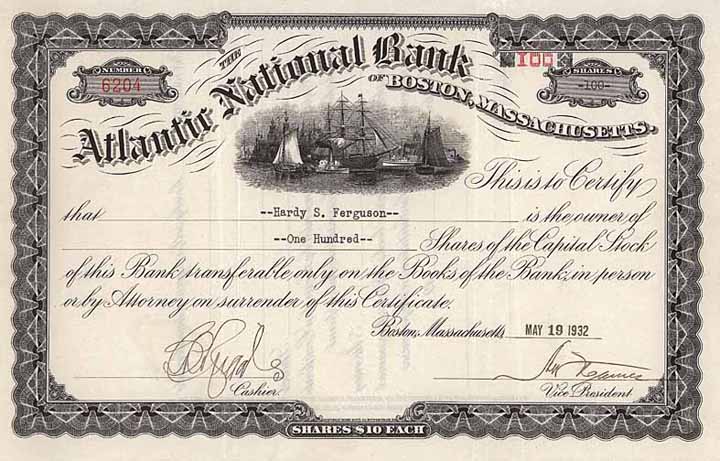 NUMBER
6204
THE
Atlantic National Bank
OF BOSTON, MASSACHUSETTS.
100
SHARES
-100-
This is to Certify
that --Hardy S. Ferguson-- is the owner of
--One Hundred-- Shares of the Capital Stock
of this Bank transferable only on the Books of the Bank, in person
or by Attorney on surrender of this Certificate.
Boston, Massachusetts MAY 19 1932
Cashier.
Vice President.
SHARES $10 EACH